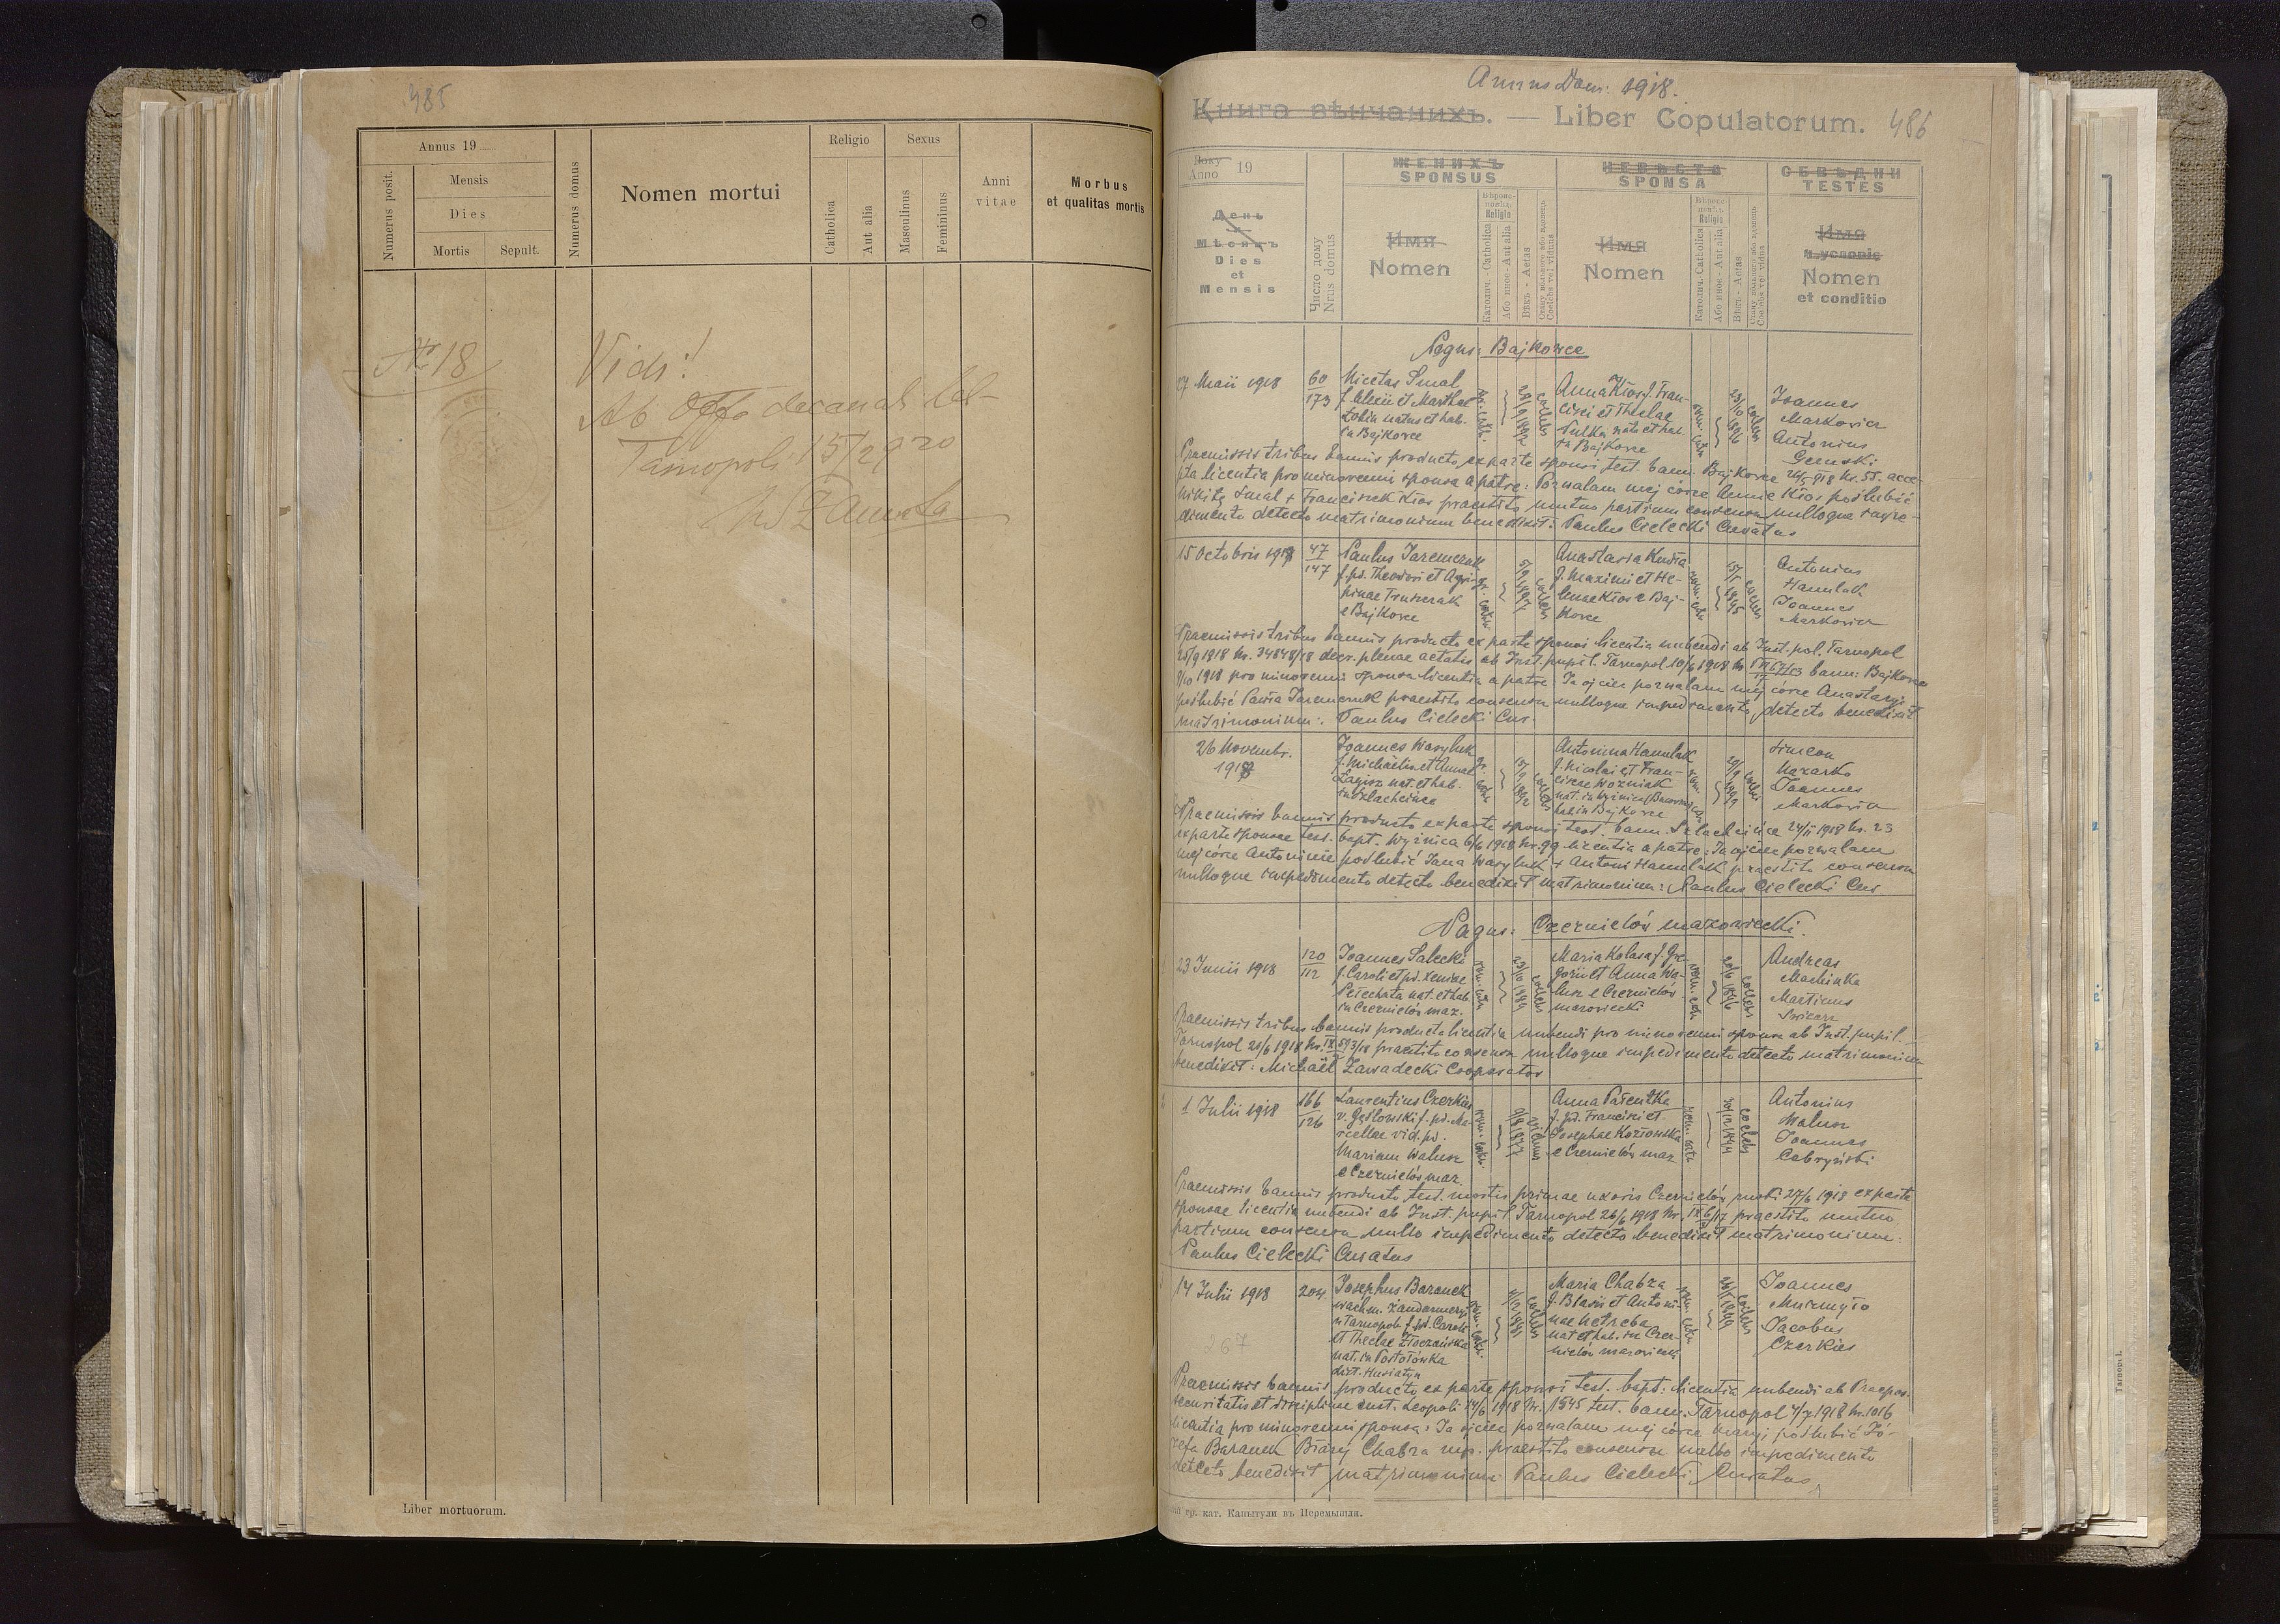 485
Annus 19
Numerus posit.
Mensis
Dies
Mortis
Sepult.
Numerus domus
Nomen mortui
Religio
Catholica
Aut alia
Sexus
Masculinus
Femininus
Anni
vitae
Morbus
et qualitas mortis
Nr 18
Vidi!
Ab Offo decanali lat-
Tarnopoli 15/2920
Liber mortuorum.
Annus Dom: 1918.
Книга вѣнчанихъ. — Liber Copulatorum. 486
Року
Anno 19
День
и
Мѣсяць
Dies
et
Mensis
Число дому
Nrus domus
ЖЕНИХЪ
SPONSUS
Имя
Nomen
Religio
Католич. - Catholica
Або иное - Aut alia
Вѣкъ - Aetas
НЕВѢСТА
SPONSA
Имя
Nomen
Religio
Католич. - Catholica
Або иное - Aut alia
Вѣкъ - Aetas
СВѢДКИ
TESTES
Имя
и условіе
Nomen
et conditio
Pagus: Bajkowce
27 Maii 1918
60
173
Nicetas Smal
f. Alexii et Marthae
Łobin natus et hab.
in Bajkowce
coelebs
Anna Kłos f. Fran-
cisci et Theclae
Sulka nata et hab.
in Bajkowce
rom. cath.
23/10 1896
coelebs
Joannes
Markowicz
Antonius
Praemissis tribus bannis producto ex parte sponsi test. bann. Bajkowce 26/5 918 Nr. 55. acce-
pta licentia pro minorenni sponsa a patre: Pozwalam mej córce Annie Kłos poślubić
Nikitę Smal + Franciszek Kłos praestito mutuo partium consensu nulloque impe-
dimento detecto matrimonium benedixit: Paulus Cielecki Curatus
15 Octobris 1918
47
147
Paulus Jaremczuk
f. pd. Theodori et Agri-
pinae
e Bajkowce
gr. cath.
coelebs
Anastasia
f. Maximi et He-
lenae Kłos e Baj-
kowce
coelebs
Antonius
Hamulak
Joannes
Markowicz
Praemissis tribus bannis producto ex parte sponsi licentia nubendi ab Inst. pol. Tarnopol
25/9 1918 Nr. 34848/18 decr. plenae aetatis ab Inst. pupil. Tarnopol 10/6 1918 Nr. bann: Bajkowce
9/10 1918 pro minorenni sponsa licentia a patre Ja ojciec pozwalam mej córce Anastazyi
poślubić Pawła Jaremczuk praestito consensu nulloque impedimento detecto benedixit
matrimonium: Paulus Cielecki Cur.
26 Novembr.
1918
Joannes Wasyluk
f. Michaëlis et Annae
Łagisz nat. et hab.
in Szlachcińce
Antonina Hamulak
f. Nicolai et Fran-
ciscae Woźniak
nat. in Wyżnica (Bucovina)
hab. in Bajkowce
Simeon
Nazarko
Joannes
Markowicz
Praemissis bannis producto ex parte sponsi test. bann. Szlachcińce 24/11 1918 Nr. 23
ex parte sponsae test. bapt. Wyżnica 6/6 1918 Nr. 99 licentia a patre: Ja ojciec pozwalam
mej córce Antoninie poślubić Jana Wasyluk + Antoni Hamulak praestito consensu
nulloque impedimento detecto benedixit matrimonium: Paulus Cielecki Cur.
Pagus: Czernielów mazowiecki.
23 Junii 1918
120
112
Joannes Salecki
f. Caroli et pd. Xeniae
Pełechata nat. et hab.
in Czernielów maz.
rom. cath.
coelebs
Maria Kolasa f. Gre-
gorii et Anna Wa-
lusz e Czernielów
mazowiecki
rom. cath.
coelebs
Andreas
Machinka
Martinus
Praemissis tribus bannis producta licentia nubendi pro minorenni sponsa ab Inst. pupil.
Tarnopol 21/6 1918 Nr. praestito consensu nulloque impedimento detecto matrimonium
benedixit: Michaël Zawadecki Cooperator
1 Julii 1918
166
126
Laurentius Czerkies
v. Gęślowski f. pd. Ma-
rcellae vid. pd.
Mariam Walusz
e Czernielów maz.
rom. cath.
viduus
Anna Pasentka
f. pd. Francisci et
Josephae Kozłowska
e Czernielów maz
rom. cath.
coelebs
Antonius
Walusz
Joannes
Praemissis bannis producto test. mortis primae uxoris Czernielów ruski 27/6 1918 ex parte
sponsae licentia nubendi ab Inst. pupil. Tarnopol 26/6 1918 Nr. praestito mutuo
partium consensu nullo impedimento detecto benedixit matrimonium:
Paulus Cielecki Curatus
14 Julii 1918
204.
267
Josephus Baranek
wachm. żandarmeryi
w Tarnopolu f. pd. Caroli
et Theclae Złoczańska
nat. in Postołówka
dist. Husiatyn
coelebs
Maria Chabza
f. Blasii et Antoni-
nae Netreba
nat. et hab. in Czer-
nielów mazowiecki
rom. cath.
coelebs
Joannes
Jacobus
Czerkies
Praemissis bannis producto ex parte sponsi test. bapt: licentia nubendi ab Praepos.
securitatis et disciplinae inst. Leopoli 14/6 1918 Nr. 1545 test. bann. Tarnopol 4/7 1918 Nr. 1016
licentia pro minorenni sponsa: Ja ojciec pozwalam mej córce Maryi poślubić Jó-
zefa Baranek Błażej Chabza mp. praestito consensu nullo impedimento
detecto benedixit matrimonium Paulus Cielecki Curatus
гр. кат. Капытули въ Перемышли.